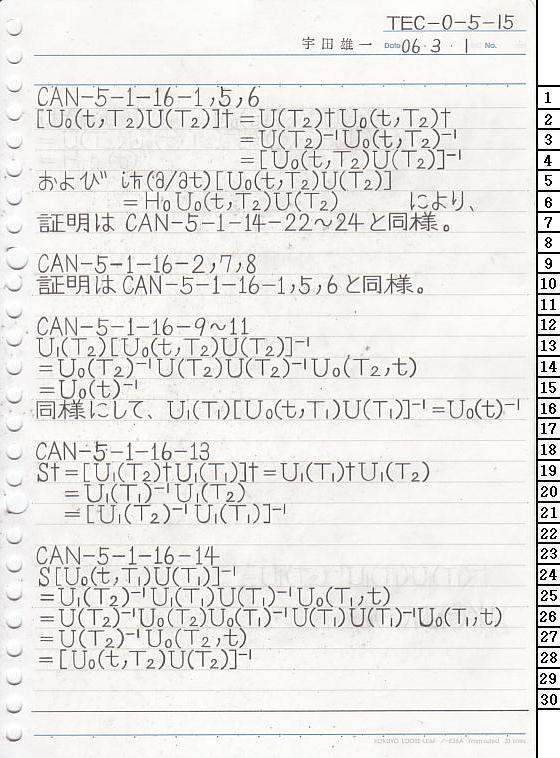 TEC-0-5-15
宇田雄一 Date 06・3・1 No.
CAN-5-1-16-1,5,6
[U₀(t,T₂)U(T₂)]† = U(T₂)†U₀(t,T₂)†
= U(T₂)⁻¹U₀(t,T₂)⁻¹
= [U₀(t,T₂)U(T₂)]⁻¹
および iħ(∂/∂t)[U₀(t,T₂)U(T₂)]
= H₀U₀(t,T₂)U(T₂) により、
証明は CAN-5-1-14-22~24 と同様。
CAN-5-1-16-2,7,8
証明は CAN-5-1-16-1,5,6 と同様。
CAN-5-1-16-9~11
U₁(T₂)[U₀(t,T₂)U(T₂)]⁻¹
= U₀(T₂)⁻¹U(T₂)U(T₂)⁻¹U₀(T₂,t)
= U₀(t)⁻¹
同様にして、U₁(T₁)[U₀(t,T₁)U(T₁)]⁻¹ = U₀(t)⁻¹
CAN-5-1-16-13
S† = [U₁(T₂)†U₁(T₁)]† = U₁(T₁)†U₁(T₂)
= U₁(T₁)⁻¹U₁(T₂)
= [U₁(T₂)⁻¹U₁(T₁)]⁻¹
CAN-5-1-16-14
S[U₀(t,T₁)U(T₁)]⁻¹
= U₁(T₂)⁻¹U₁(T₁)U(T₁)⁻¹U₀(T₁,t)
= U(T₂)⁻¹U₀(T₂)U₀(T₁)⁻¹U(T₁)U(T₁)⁻¹U₀(T₁,t)
= U(T₂)⁻¹U₀(T₂,t)
= [U₀(t,T₂)U(T₂)]⁻¹
1
2
3
4
5
6
7
8
9
10
11
12
13
14
15
16
17
18
19
20
21
22
23
24
25
26
27
28
29
30